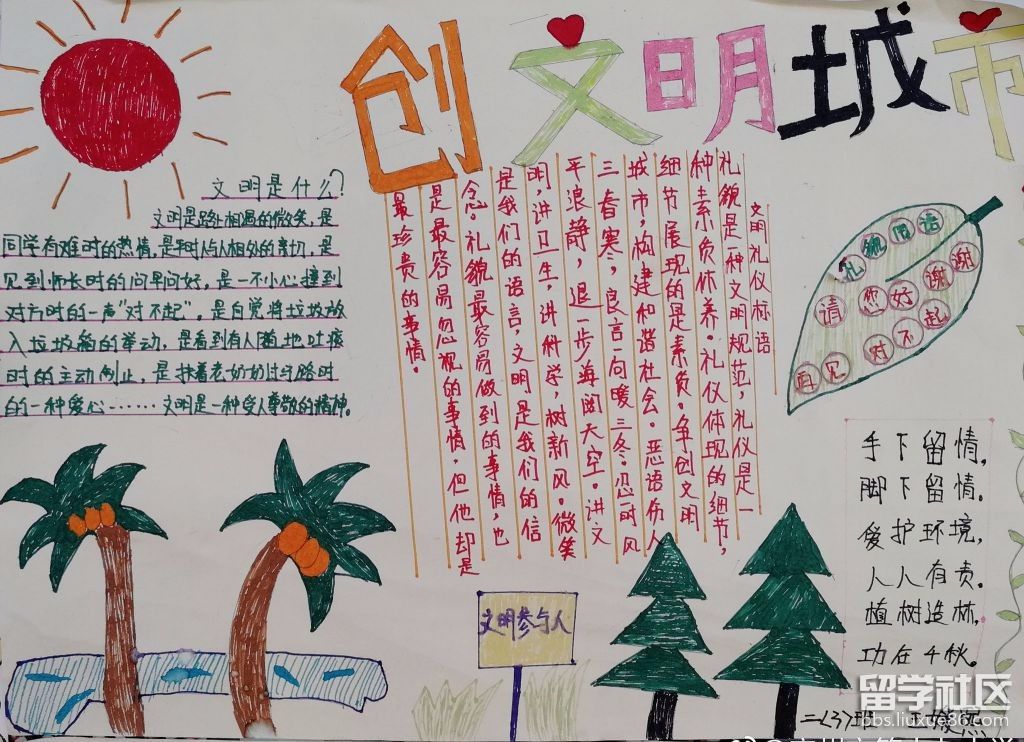 创文明城市
文明是什么？
文明是路上相遇的微笑，是
同学有难时的热情，是平时与人相处的亲切，是
见到师长时的问早问好，是一不小心撞到
对方时的一声“对不起”，是自觉将垃圾放
入垃圾箱的举动，是看到有人随地吐痰
时的主动制止，是扶着老奶奶过马路时
的一种爱心……文明是一种受人尊敬的精神。
文明礼仪标语
礼貌是一种文明规范，礼仪是一
种素质休养。礼仪体现的细节，
细节展现的是素质。争创文明
城市，构建和谐社会。恶语伤人
三春寒，良言一句暖三冬。忍一时风
平浪静，退一步海阔天空。讲文
明，讲卫生，讲科学，树新风。微笑
是我们的语言，文明是我们的信
念。礼貌最容易做到的事情，也
是最容易忽视的事情，但他却是
最珍贵的事情。
礼貌用语
谢谢
请
您好
对不起
再见
手下留情，
脚下留情。
爱护环境，
人人有责。
植树造林，
功在千秋。
文明参与人
二(3)班
留学社区
bbs.liuxue86.com